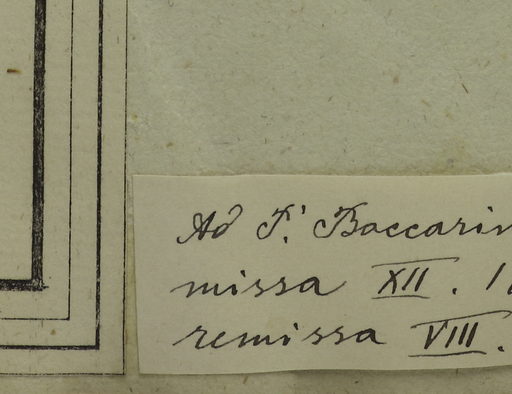 Ad P. Baccarin
missa XII. 1
remissa VIII.